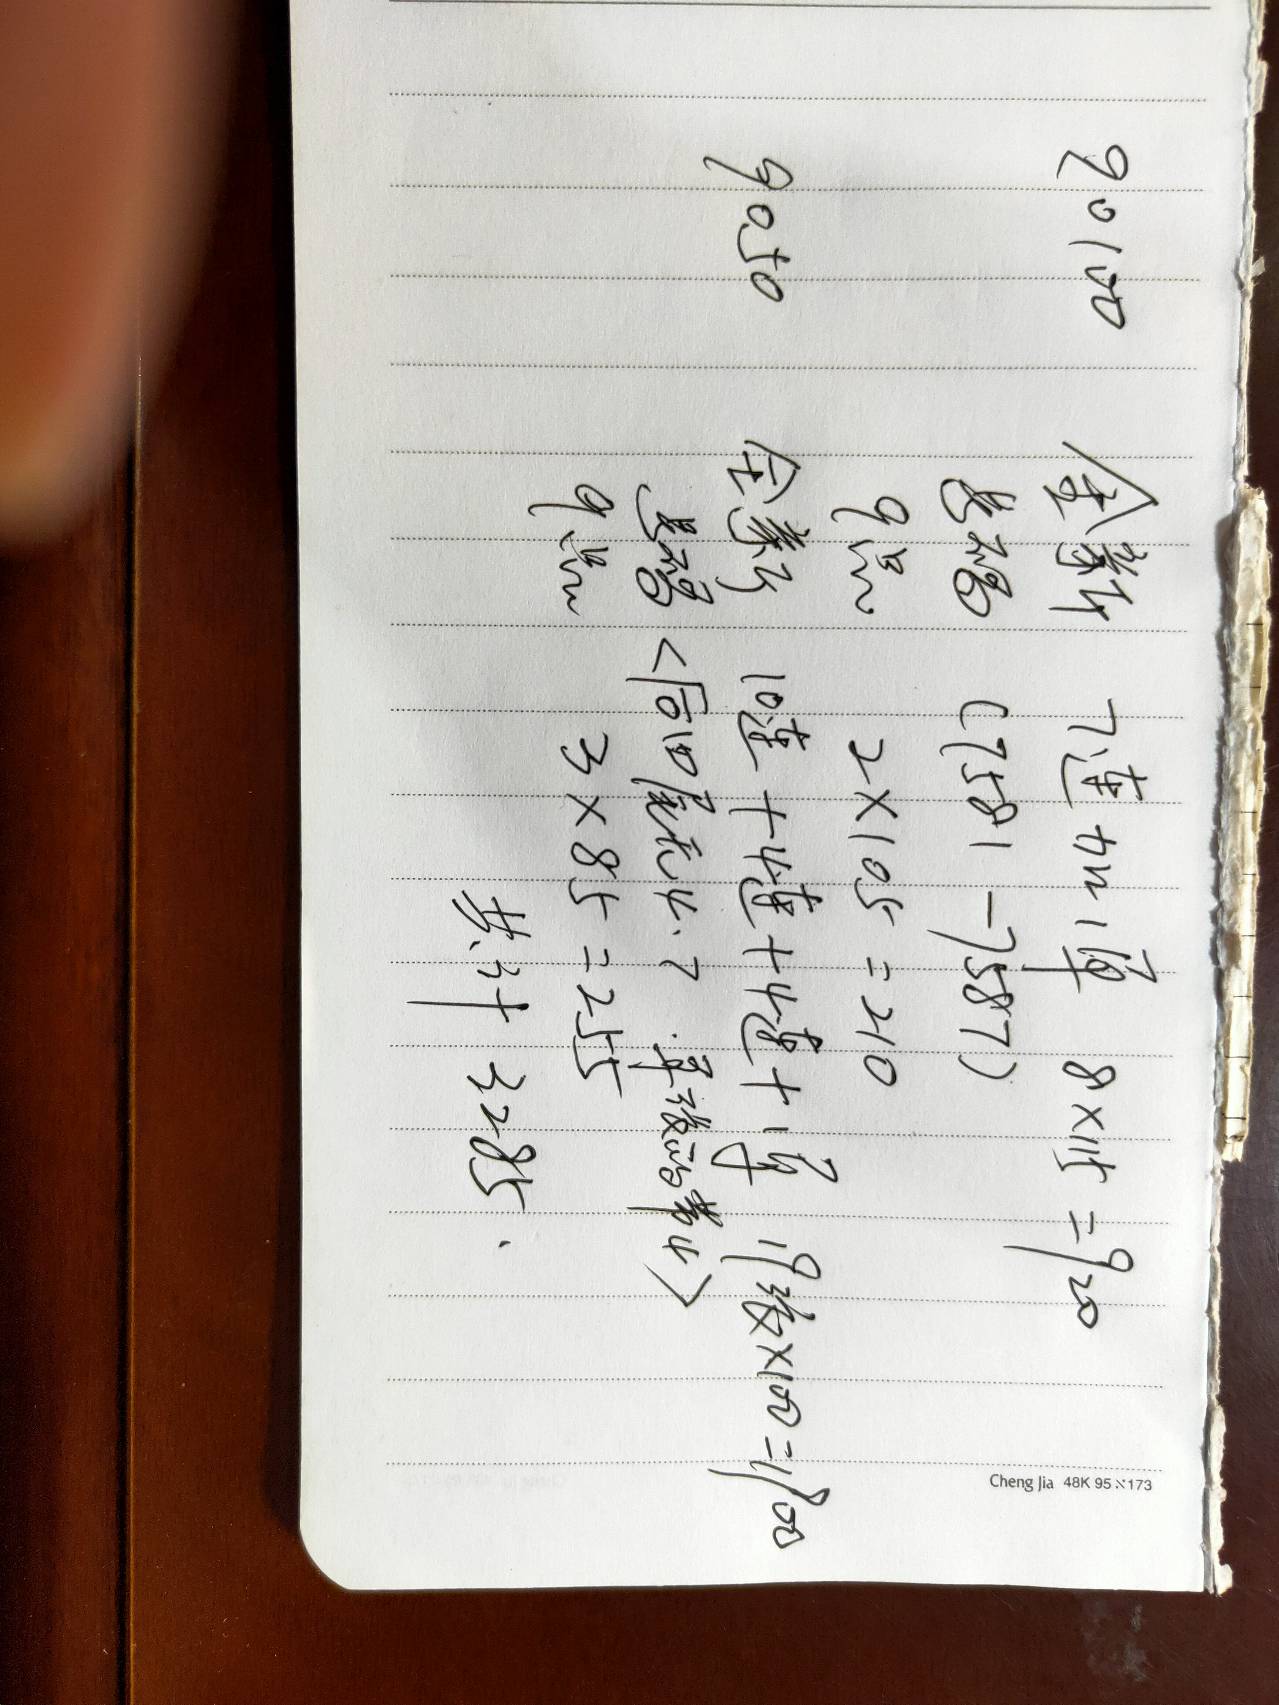 90100 全新 7连+1单 8×115=920
号码 (7581-7587)
9品 2×105=210
9050 全新 10连+4连+4连+1单 19张×100=1900
号码<同10尾无4.7 单张的带4>
9品 3×85=255
共计 3285.
Cheng Jia 48K 95×173